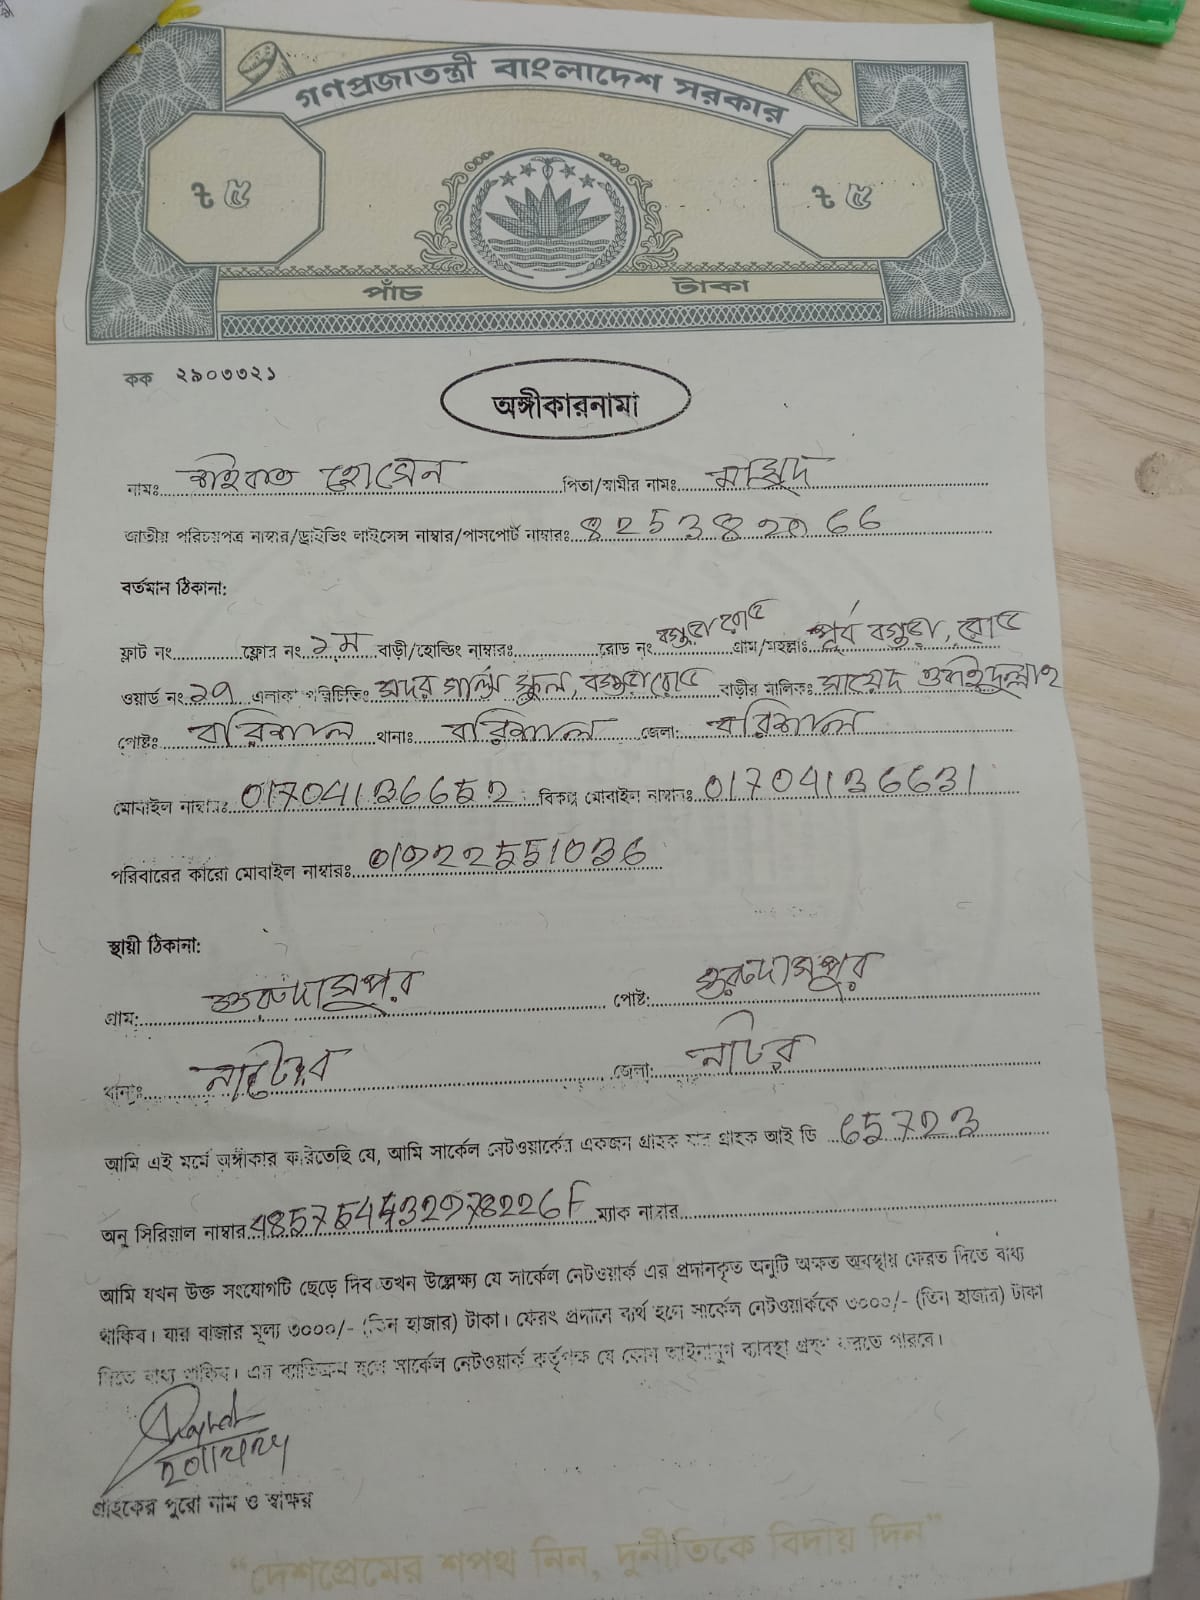 গণপ্রজাতন্ত্রী বাংলাদেশ সরকার
৳ ৫ ৳ ৫
পাঁচ টাকা
কক ২৯০৩৩২১
অঙ্গীকারনামা
নামঃ হোসেন পিতা/স্বামীর নামঃ
জাতীয় পরিচয়পত্র নাম্বার/ড্রাইভিং লাইসেন্স নাম্বার/পাসপোর্ট নাম্বারঃ
বর্তমান ঠিকানা:
ফ্লাট নং ফ্লোর নং ১ম বাড়ী/হোল্ডিং নাম্বারঃ রোড নং বগুড়া রোড গ্রাম/মহল্লাঃ পূর্ব বগুড়া, রোড
ওয়ার্ড নং এলাকা পরিচিতিঃ সদর গার্লস স্কুল, বগুড়া রোড বাড়ীর মালিকঃ সায়েদ
পোষ্টঃ বরিশাল থানাঃ বরিশাল জেলা: বরিশাল
মোবাইল নাম্বারঃ 01704136652 বিকল্প মোবাইল নাম্বারঃ 01704136631
পরিবারের কারো মোবাইল নাম্বারঃ
স্থায়ী ঠিকানা:
গ্রাম: গুরুদাসপুর পোষ্ট: গুরুদাসপুর
থানাঃ জেলা:
আমি এই মর্মে অঙ্গীকার করিতেছি যে, আমি সার্কেল নেটওয়ার্কের একজন গ্রাহক যার গ্রাহক আই ডি 65723
অনু সিরিয়াল নাম্বার ম্যাক নাম্বার
আমি যখন উক্ত সংযোগটি ছেড়ে দিব তখন উল্লেক্ষ্য যে সার্কেল নেটওয়ার্ক এর প্রদানকৃত অনুটি অক্ষত অবস্থায় ফেরত দিতে বাধ্য
থাকিব। যার বাজার মূল্য ৩০০০/- (তিন হাজার) টাকা। ফেরৎ প্রদানে ব্যর্থ হলে সার্কেল নেটওয়ার্ককে ৩০০০/- (তিন হাজার) টাকা
দিতে বাধ্য থাকিব। এর ব্যতিক্রম হলে সার্কেল নেটওয়ার্ক কর্তৃপক্ষ যে কোন আইনানুগ ব্যবস্থা গ্রহণ করতে পারবে।
গ্রাহকের পুরো নাম ও স্বাক্ষর
“দেশপ্রেমের শপথ নিন, দুর্নীতিকে বিদায় দিন”